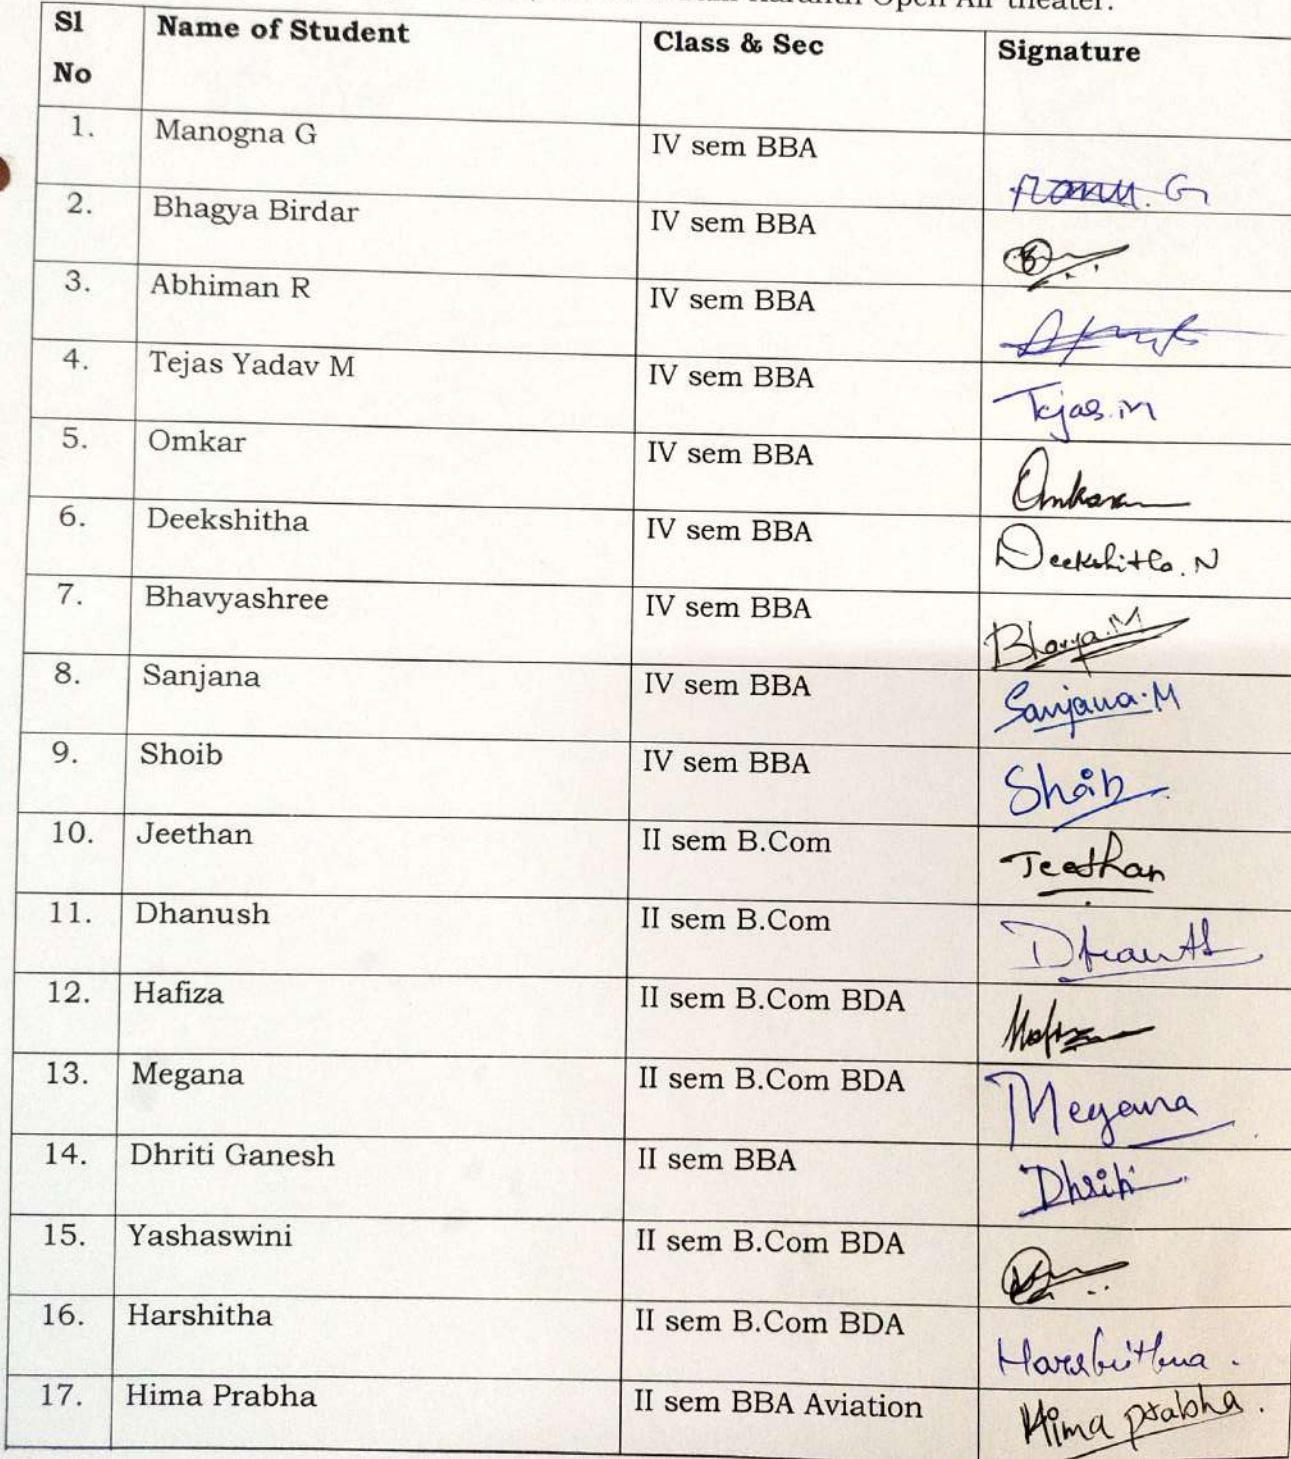 Karanth Open Air theater.
Sl No Name of Student Class & Sec Signature
1. Manogna G IV sem BBA
2. Bhagya Birdar IV sem BBA
3. Abhiman R IV sem BBA
4. Tejas Yadav M IV sem BBA Tejas.M
5. Omkar IV sem BBA Omkar
6. Deekshitha IV sem BBA Deekshitha.N
7. Bhavyashree IV sem BBA Bhavya.M
8. Sanjana IV sem BBA Sanjana.M
9. Shoib IV sem BBA Shoib
10. Jeethan II sem B.Com Jeethan
11. Dhanush II sem B.Com
12. Hafiza II sem B.Com BDA
13. Megana II sem B.Com BDA Megana
14. Dhriti Ganesh II sem BBA Dhriti
15. Yashaswini II sem B.Com BDA
16. Harshitha II sem B.Com BDA Harshitha.
17. Hima Prabha II sem BBA Aviation Hima prabha.